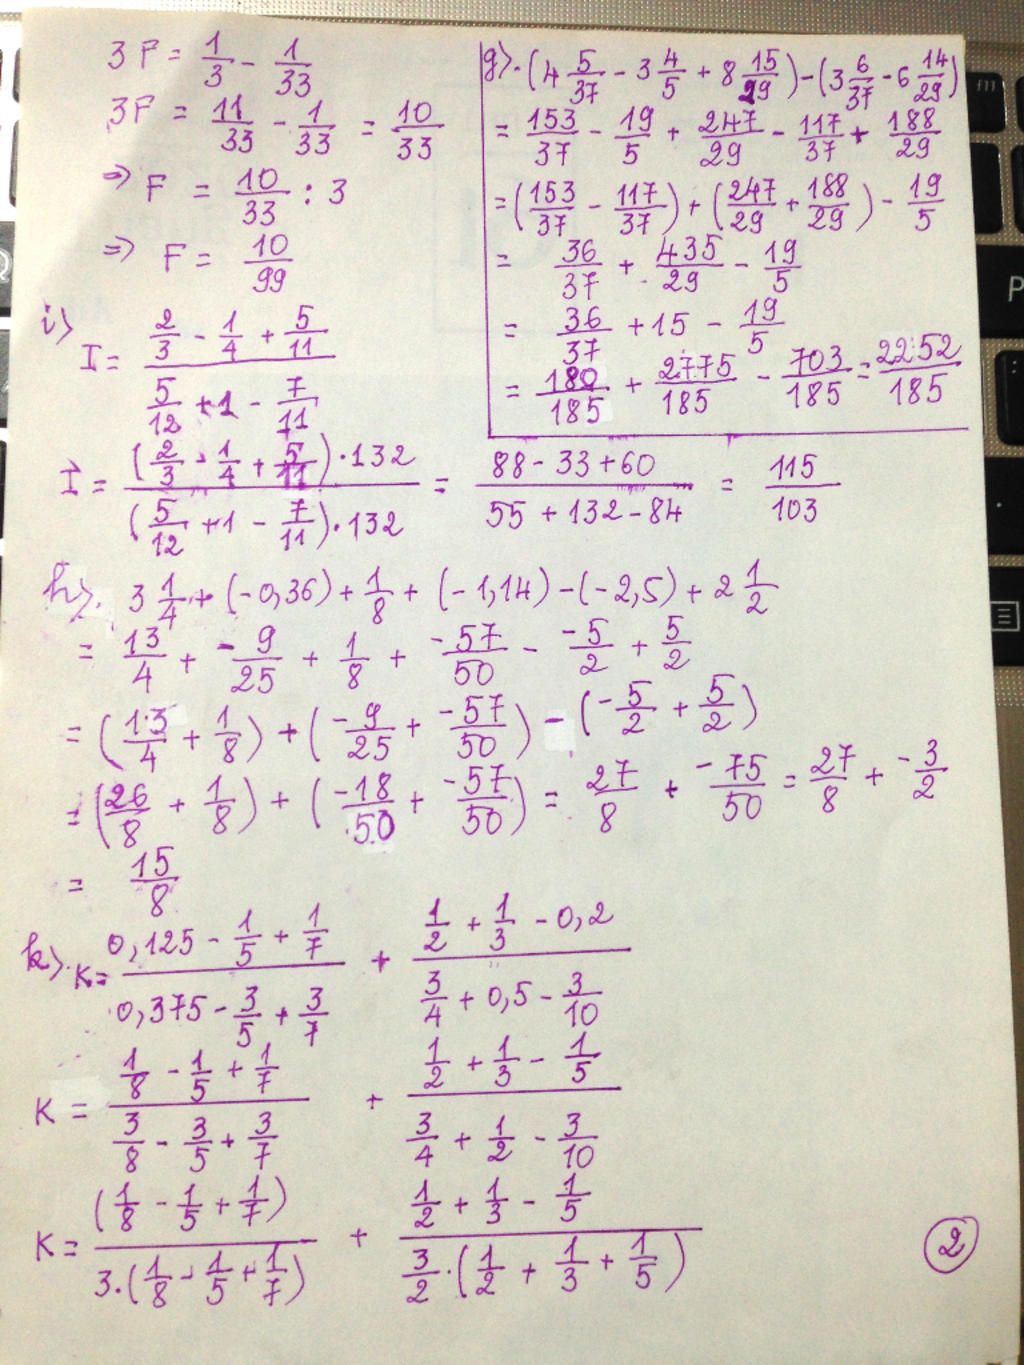 3F = 1/3 - 1/33
3F = 11/33 - 1/33 = 10/33
=> F = 10/33 : 3
=> F = 10/99
g) (4 5/37 - 3 4/5 + 8 15/29) - (3 6/37 - 6 14/29)
= 153/37 - 19/5 + 247/29 - 117/37 + 188/29
= (153/37 - 117/37) + (247/29 + 188/29) - 19/5
= 36/37 + 435/29 - 19/5
= 36/37 + 15 - 19/5
= 180/185 + 2775/185 - 703/185 = 2252/185
i) I = (2/3 - 1/4 + 5/11) / (5/12 + 1 - 7/11)
I = ((2/3 - 1/4 + 5/11).132) / ((5/12 + 1 - 7/11).132) = (88 - 33 + 60) / (55 + 132 - 84) = 115/103
h). 3 1/4 + (-0,36) + 1/8 + (-1,14) - (-2,5) + 2 1/2
= 13/4 + -9/25 + 1/8 + -57/50 - -5/2 + 5/2
= (13/4 + 1/8) + (-9/25 + -57/50) - (-5/2 + 5/2)
= (26/8 + 1/8) + (-18/50 + -57/50) = 27/8 + -75/50 = 27/8 + -3/2
= 15/8
k). K = (0,125 - 1/5 + 1/7) / (0,375 - 3/5 + 3/7) + (1/2 + 1/3 - 0,2) / (3/4 + 0,5 - 3/10)
K = (1/8 - 1/5 + 1/7) / (3/8 - 3/5 + 3/7) + (1/2 + 1/3 - 1/5) / (3/4 + 1/2 - 3/10)
K = (1/8 - 1/5 + 1/7) / (3.(1/8 - 1/5 + 1/7)) + (1/2 + 1/3 - 1/5) / (3/2.(1/2 + 1/3 + 1/5))
2